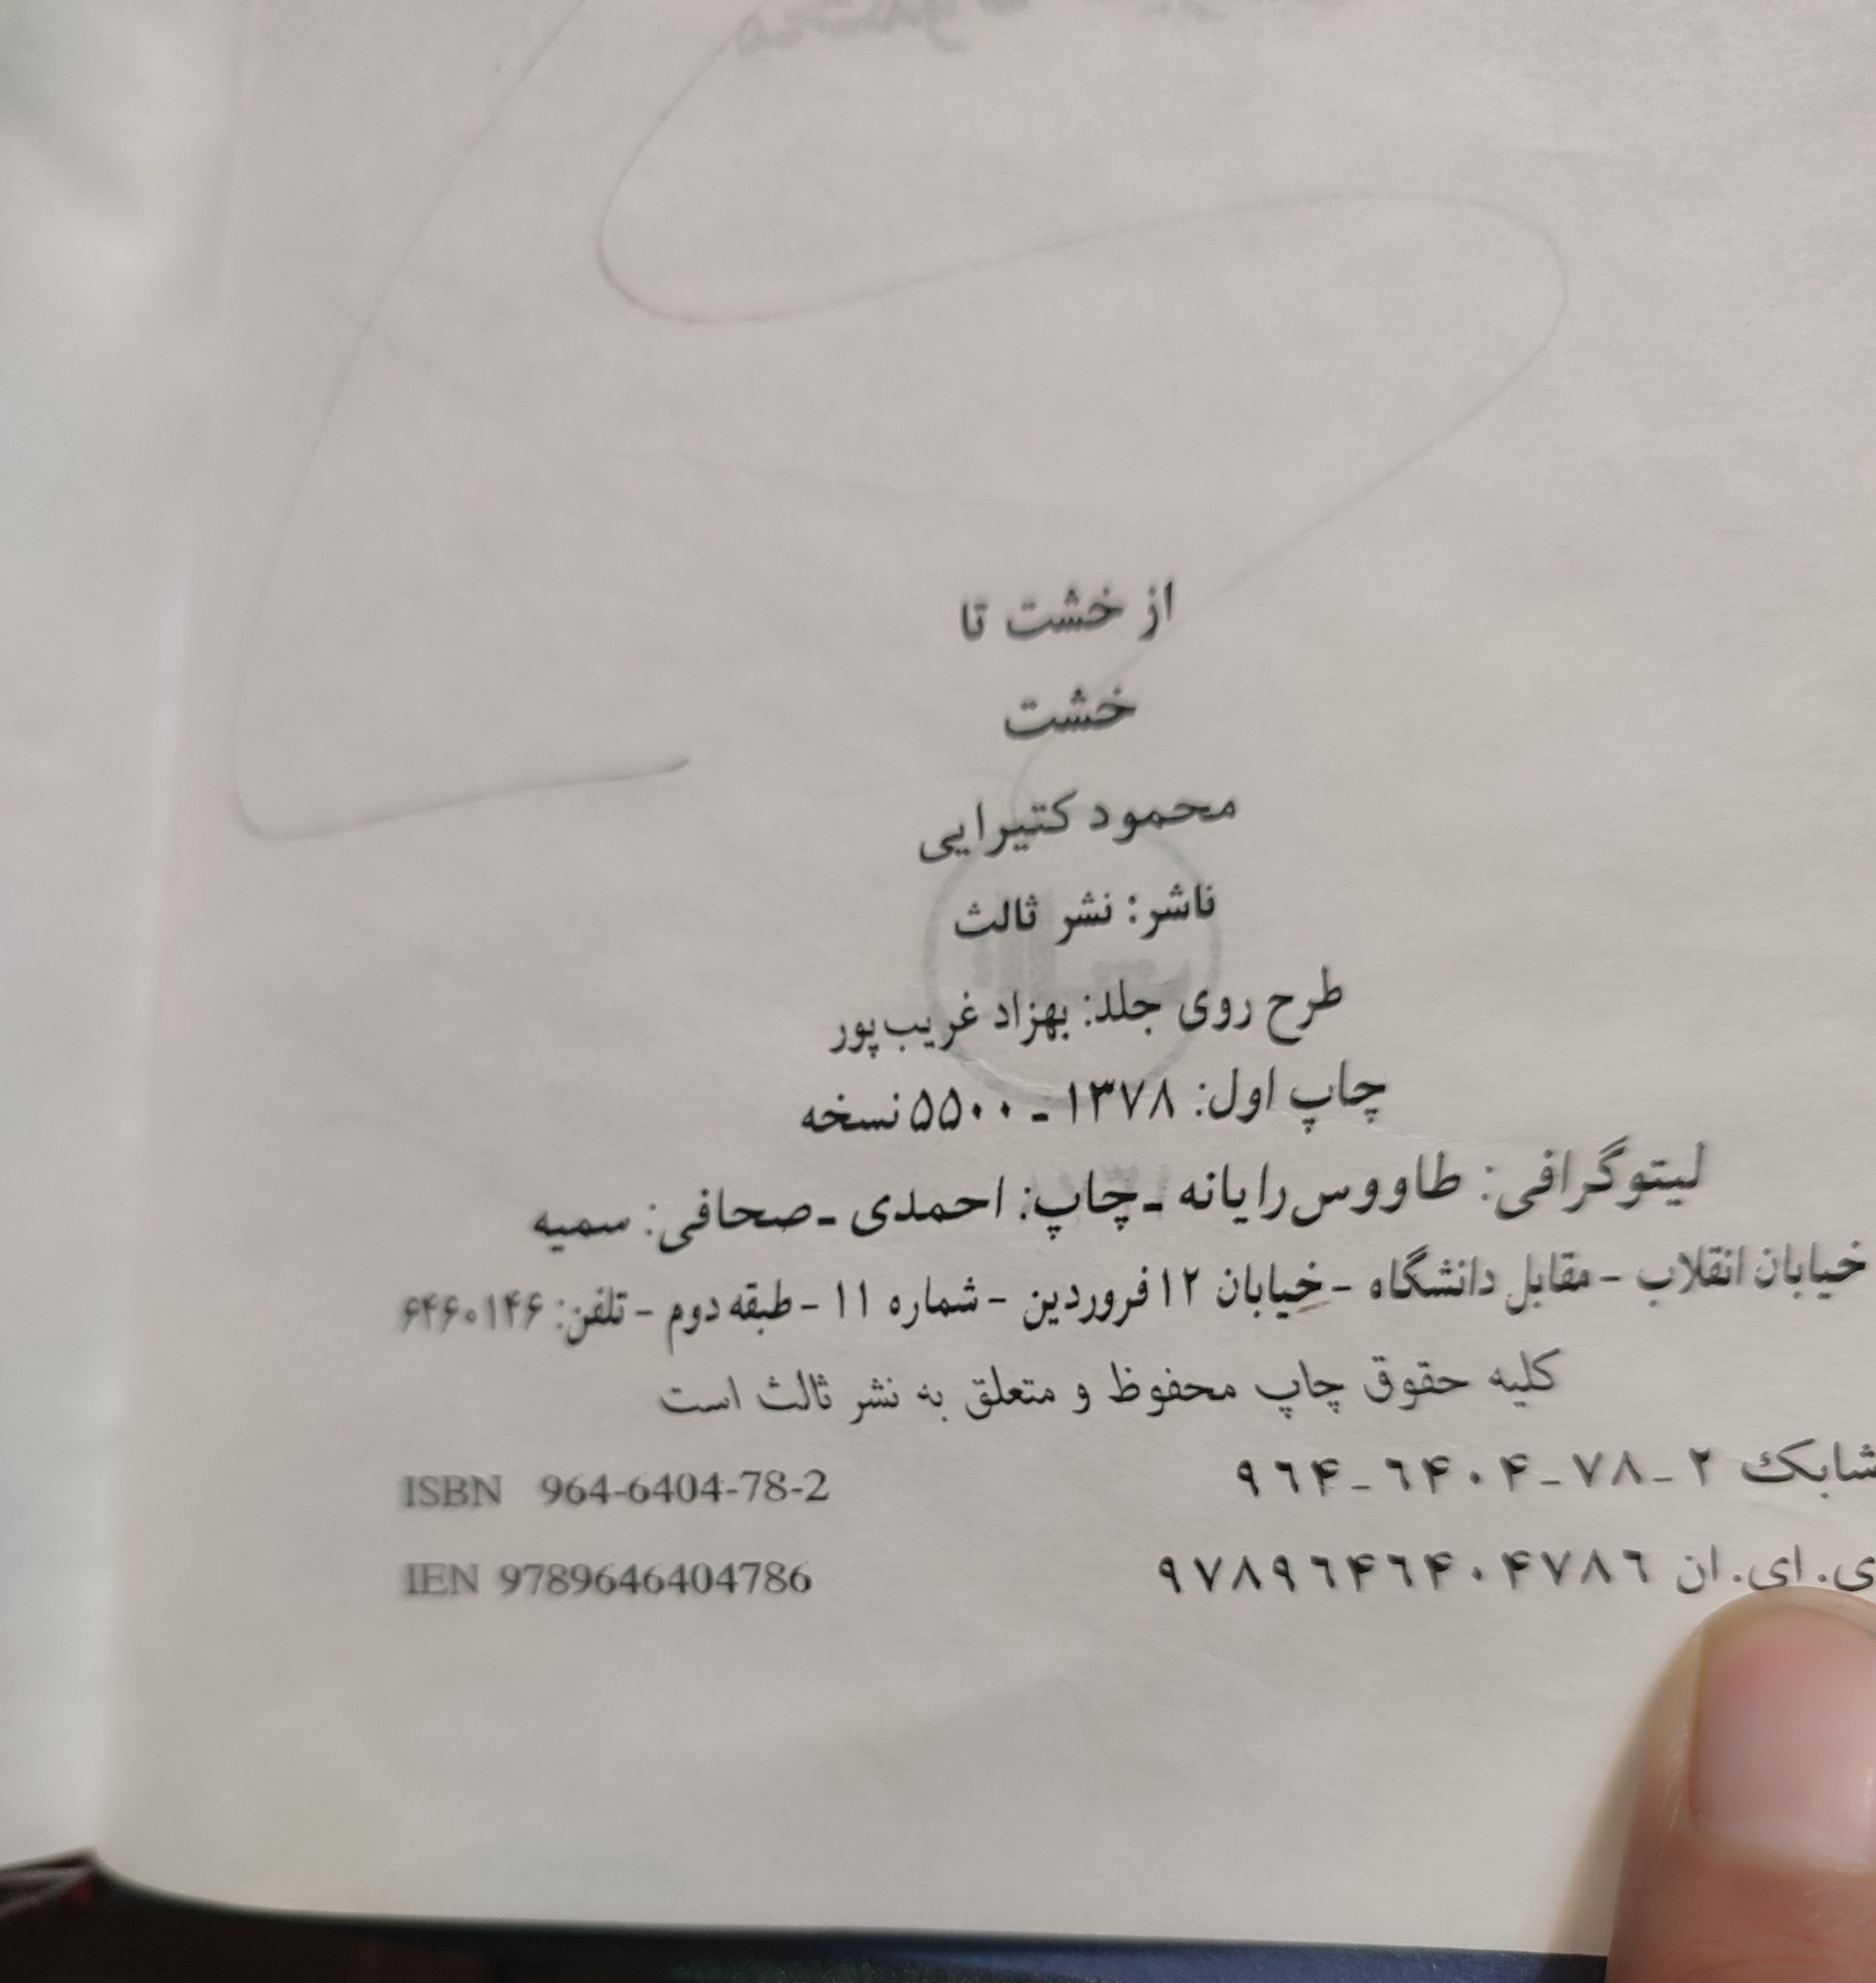 از خشت تا
خشت
محمود کتیرایی
ناشر: نشر ثالث
طرح روی جلد: بهزاد غریب‌پور
چاپ اول: ۱۳۷۸ ـ ۵۵۰۰ نسخه
لیتوگرافی: طاووس‌رایانه ـ چاپ: احمدی ـ صحافی: سمیه
خیابان انقلاب – مقابل دانشگاه – خیابان ۱۲ فروردین – شماره ۱۱ – طبقه دوم – تلفن: ۶۴۶۰۱۴۶
کلیه حقوق چاپ محفوظ و متعلق به نشر ثالث است
شابک ۲-۷۸-۶۴۰۴-۹۶۴
ISBN 964-6404-78-2
ی. ای. ان ۹۷۸۹۶۴۶۴۰۴۷۸۶
IEN 9789646404786